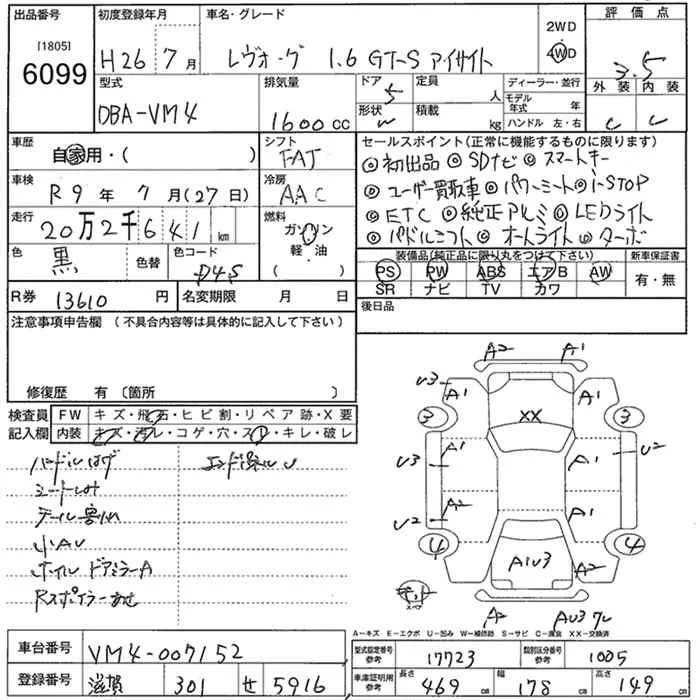 出品番号 初度登録年月 車名・グレード 2WD 評価点
[1805] 6099 H26年 7月 レヴォーグ 1.6 GT-S アイサイト 4WD 3.5
型式 排気量 ドア 定員 ディーラー・並行 外装 内装
DBA-VM4 1600cc 5 人 モデル年式 年 C C
形状 W 積載 kg ハンドル 左・右
車歴 シフト セールスポイント(正常に機能するものに限ります)
自家用・( ) FAT ◎初出品 ◎SDナビ ◎スマートキー
車検 冷房 ◎ユーザー買取車 ◎パワーシート ◎i-STOP
R9年 7月(27日) AAC ◎ETC ◎純正アルミ ◎LEDライト
走行 燃料 ◎パドルシフト ◎オートライト ◎ターボ
20万2千641km ガソリン
軽・油
( )
色 黒 色替 色コード D4S
装備品(純正品に限り丸をつけて下さい) 新車保証書
PS PW ABS エアB AW 有・無
SR ナビ TV カワ
R券 13610円 名変期限 月 日 後日品
注意事項申告欄(不具合内容等は具体的に記入して下さい)
修復歴 有〔箇所 〕
検査員 FW キズ・飛石・ヒビ割・リペア跡・X要
記入欄 内装 キズ・汚レ・コゲ・穴・スレ・キレ・破レ
ハンドルハゲ
シートしみ
小AU
ホイル ドアミラーA
Rスポイラー
A2 A1
U3 A1 A1
3 XX 3
U3 A1 A1 U2
U2 A2 A1
4 A1U3 A2 4
スペア
A2 AU3
A-キズ E-エクボ U-凹み W-補修跡 S-サビ C-腐食 XX-交換済
車台番号 VM4-007152 型式指定番号 参考 17723 類別区分番号 参考 1005
登録番号 滋賀 301 せ 5916 車庫証明用 参考 長さ 469cm 幅 178cm 高さ 149cm